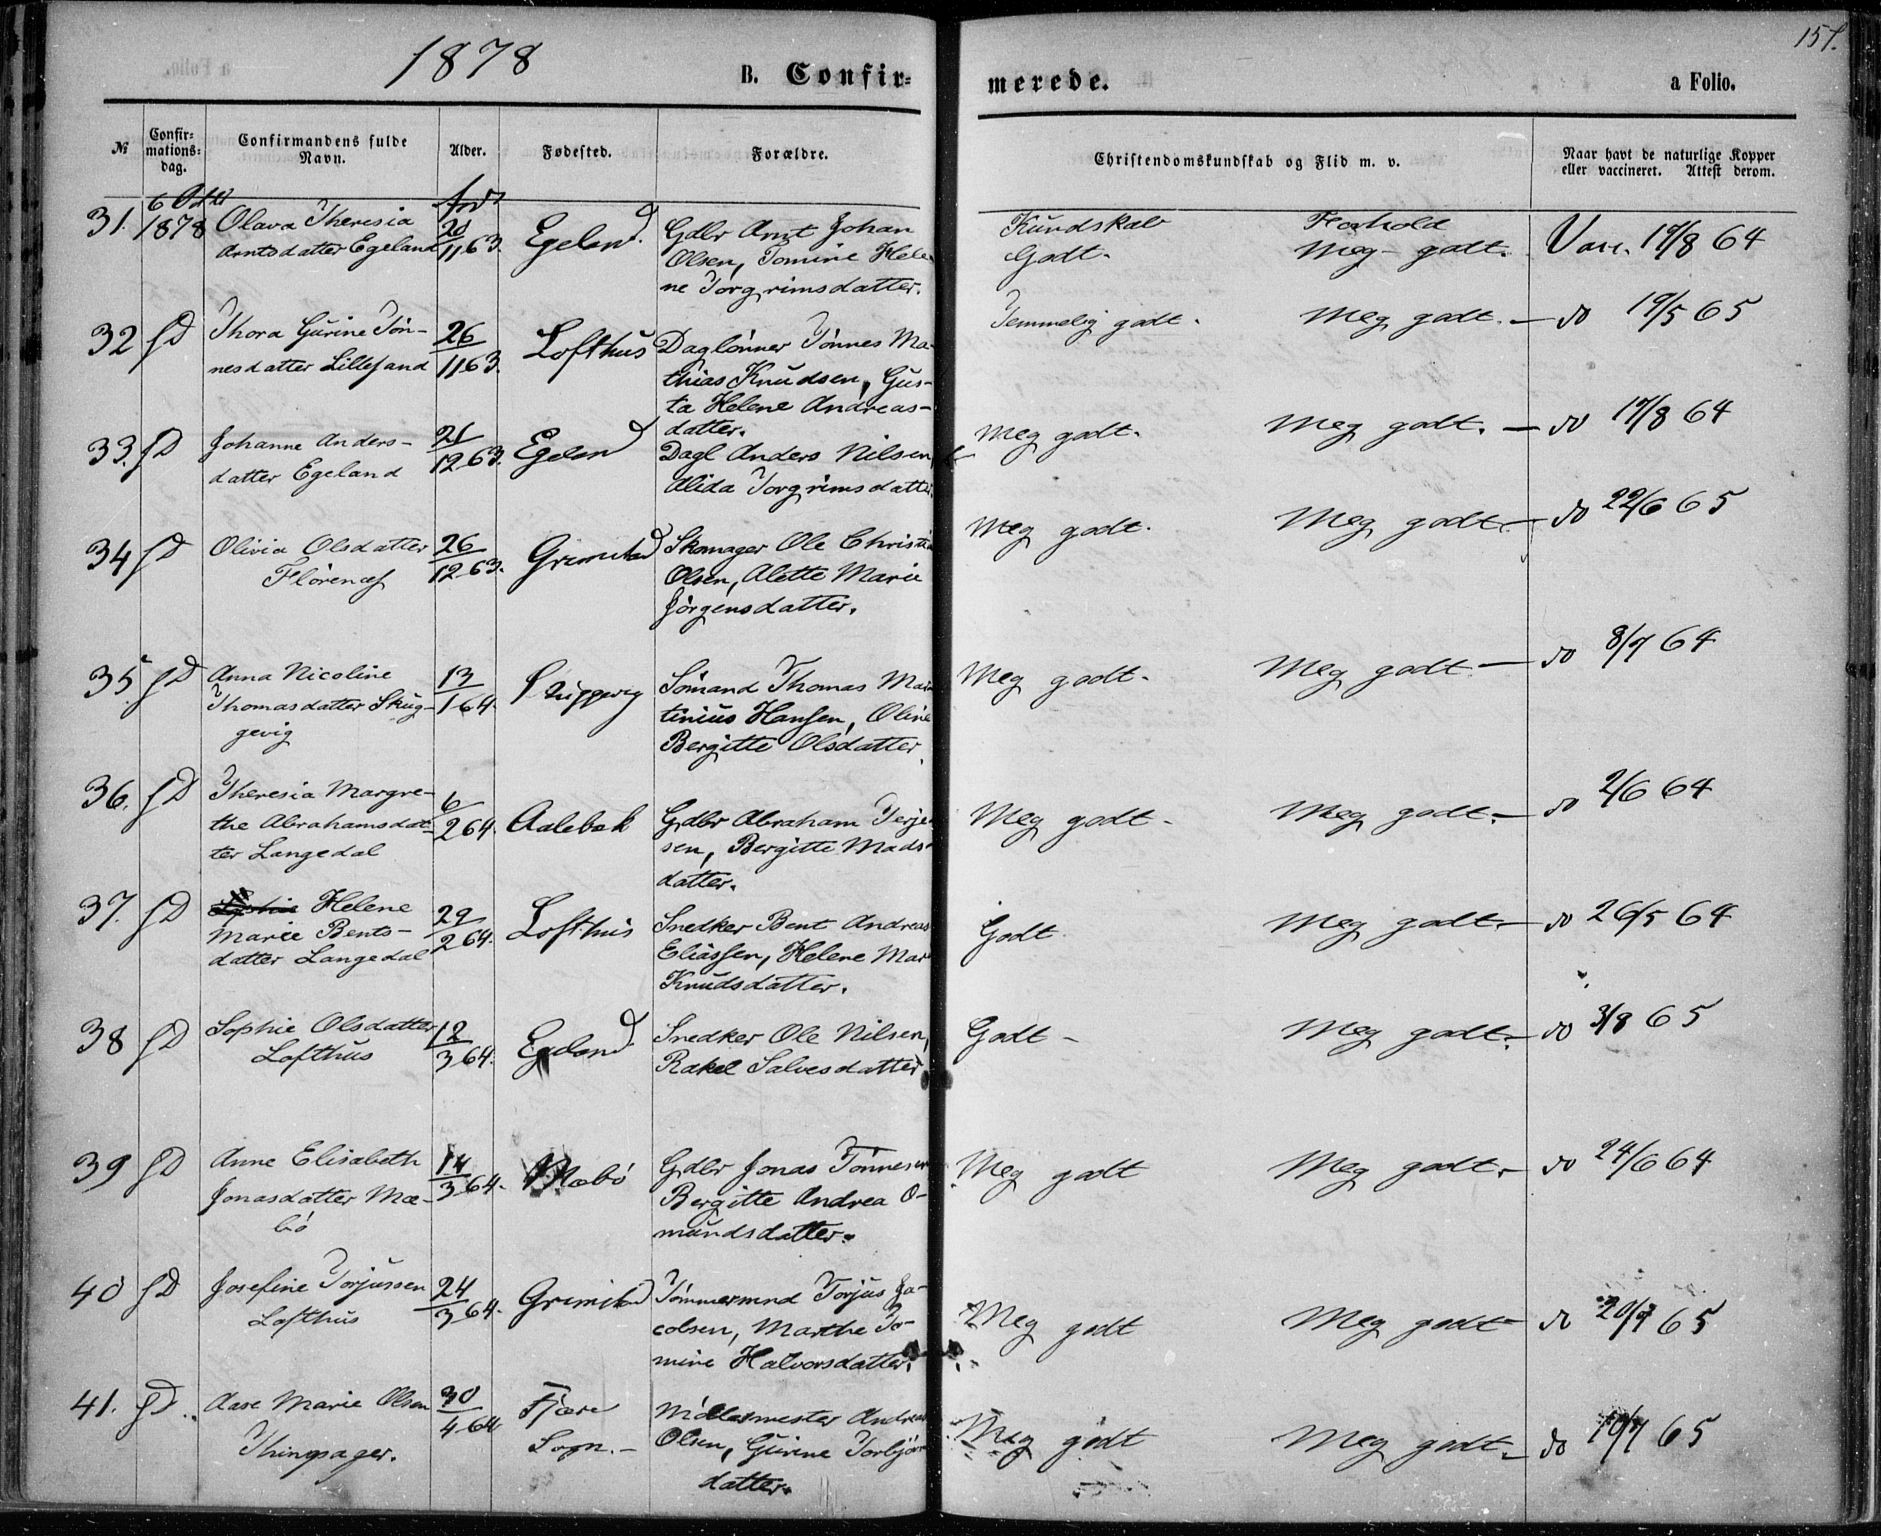 1878
B. Confir=
merede.
a Folio.
151.
№
Confir=
mations=
dag.
Confirmandens fulde
Navn.
Alder.
Fødested.
Forældre.
Christendomskundskab og Flid m. v.
Naar havt de naturlige Kopper
eller vaccineret. Attest derom.
31. 6 Octb
1878
Olava Theresia
Arntsdatter Egeland
20/11 63.
Egeland.
Gdbr Arnt Johan
Olsen, Tomine Hele-
ne Torgrimsdatter.
Kundskab
Godt.
Forhold
Meg godt.
Vacc. 17/8 64
32 sD
Thora Gurine Tön-
nesdatter Lillesand
26/11 63.
Lofthus
Daglönner Tönnes Ma-
thias Knudsen, Gus-
ta Helene Andreas-
datter.
Temmelig godt.
Meg godt. — do 19/5 65
33. sD
Johanne Anders-
datter Egeland
21/12 63.
Egeland
Dagl Anders Nilsen,
Alida Torgrimsdatter
Meg godt.
Meg godt. — do 17/8 64
34 sD
Olivia Olsdatter
26/12 63.
Grimstad
Skomager Ole Christian
Olsen, Alette Marie
Jörgensdatter.
Meg godt.
Meg godt. — do 22/6 65
35 sD
Anna Nicoline
Thomasdatter Skug-
gevig
13/1 64.
Skuggevig
Sömand Thomas Mar
tinius Hansen, Oline
Bergitte Olsdatter
Meg godt.
Meg godt — do 8/7 64
36. sD
Theresia Margre-
the Abrahamsdat-
ter Langedal
6/2 64.
Aalebæk
Gdbr Abraham Terje
sen, Bergitte Mads-
datter.
Meg godt.
Meg godt. — do 2/6 64
37. sD
Helene
Marie Bents-
datter Langedal
29/2 64.
Lofthus
Snedker Bent Andreas
Eliassen, Helene Mar
Knudsdatter.
Godt
Meg godt. — do 26/5 64
38 sD
Sophie Olsdatter
Lofthus
12/3 64.
Egeland
Snedker Ole Nilsen,
Rakel Salvesdatter
Godt -
Meg godt. — do 3/8 65
39 sD
Anne Elisabeth
Jonasdatter Mæ-
bö
14/3 64.
Mæbö
Gdbr Jonas Tönnesen
Bergitte Andrea O-
mundsdatter.
Meg godt
Meg godt. — do 24/6 64
40 sD
Josefine Torjussen
Lofthus
24/3 64.
Grimstad
Tömmermnd Torjus Ja-
cobsen, Marthe To-
mine Halvorsdatter.
Meg godt
Meg godt — do 20/7 65
41. sD.
Aase Marie Olsen
Thingsager.
30/4 64
Fjære
Sogn. -
Andreas
Olsen, Gurine Torbjörns
datter.
Meg godt
Meg godt. do 19/7 65